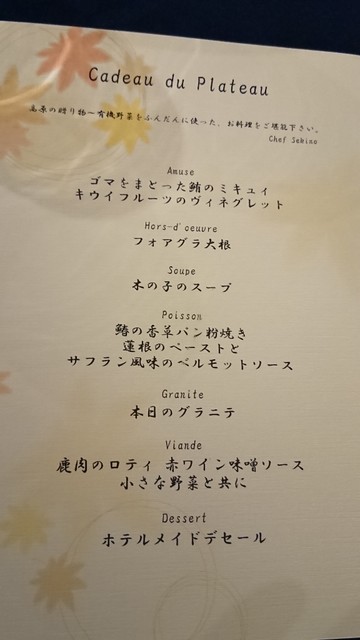 Cadeau du Plateau
高原の贈り物～有機野菜をふんだんに使った、お料理をご堪能下さい。
Chef Sekino
Amuse
ゴマをまとった鮪のミキュイ
キウイフルーツのヴィネグレット
Hors-d'oeuvre
フォアグラ大根
Soupe
木の子のスープ
Poisson
鰆の香草パン粉焼き
蓮根のペーストと
サフラン風味のベルモットソース
Granite
本日のグラニテ
Viande
鹿肉のロティ 赤ワイン味噌ソース
小さな野菜と共に
Dessert
ホテルメイドデセール